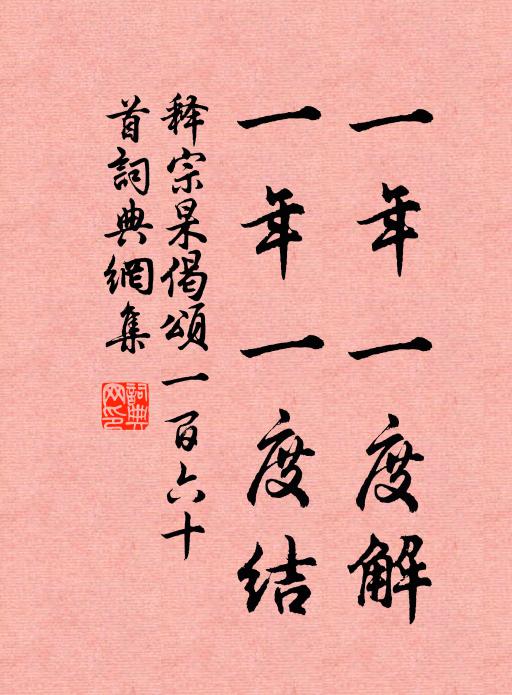 一年一度解
一年一度结
释宗杲偈頌一百六十
首詞典網集
詞典
网印